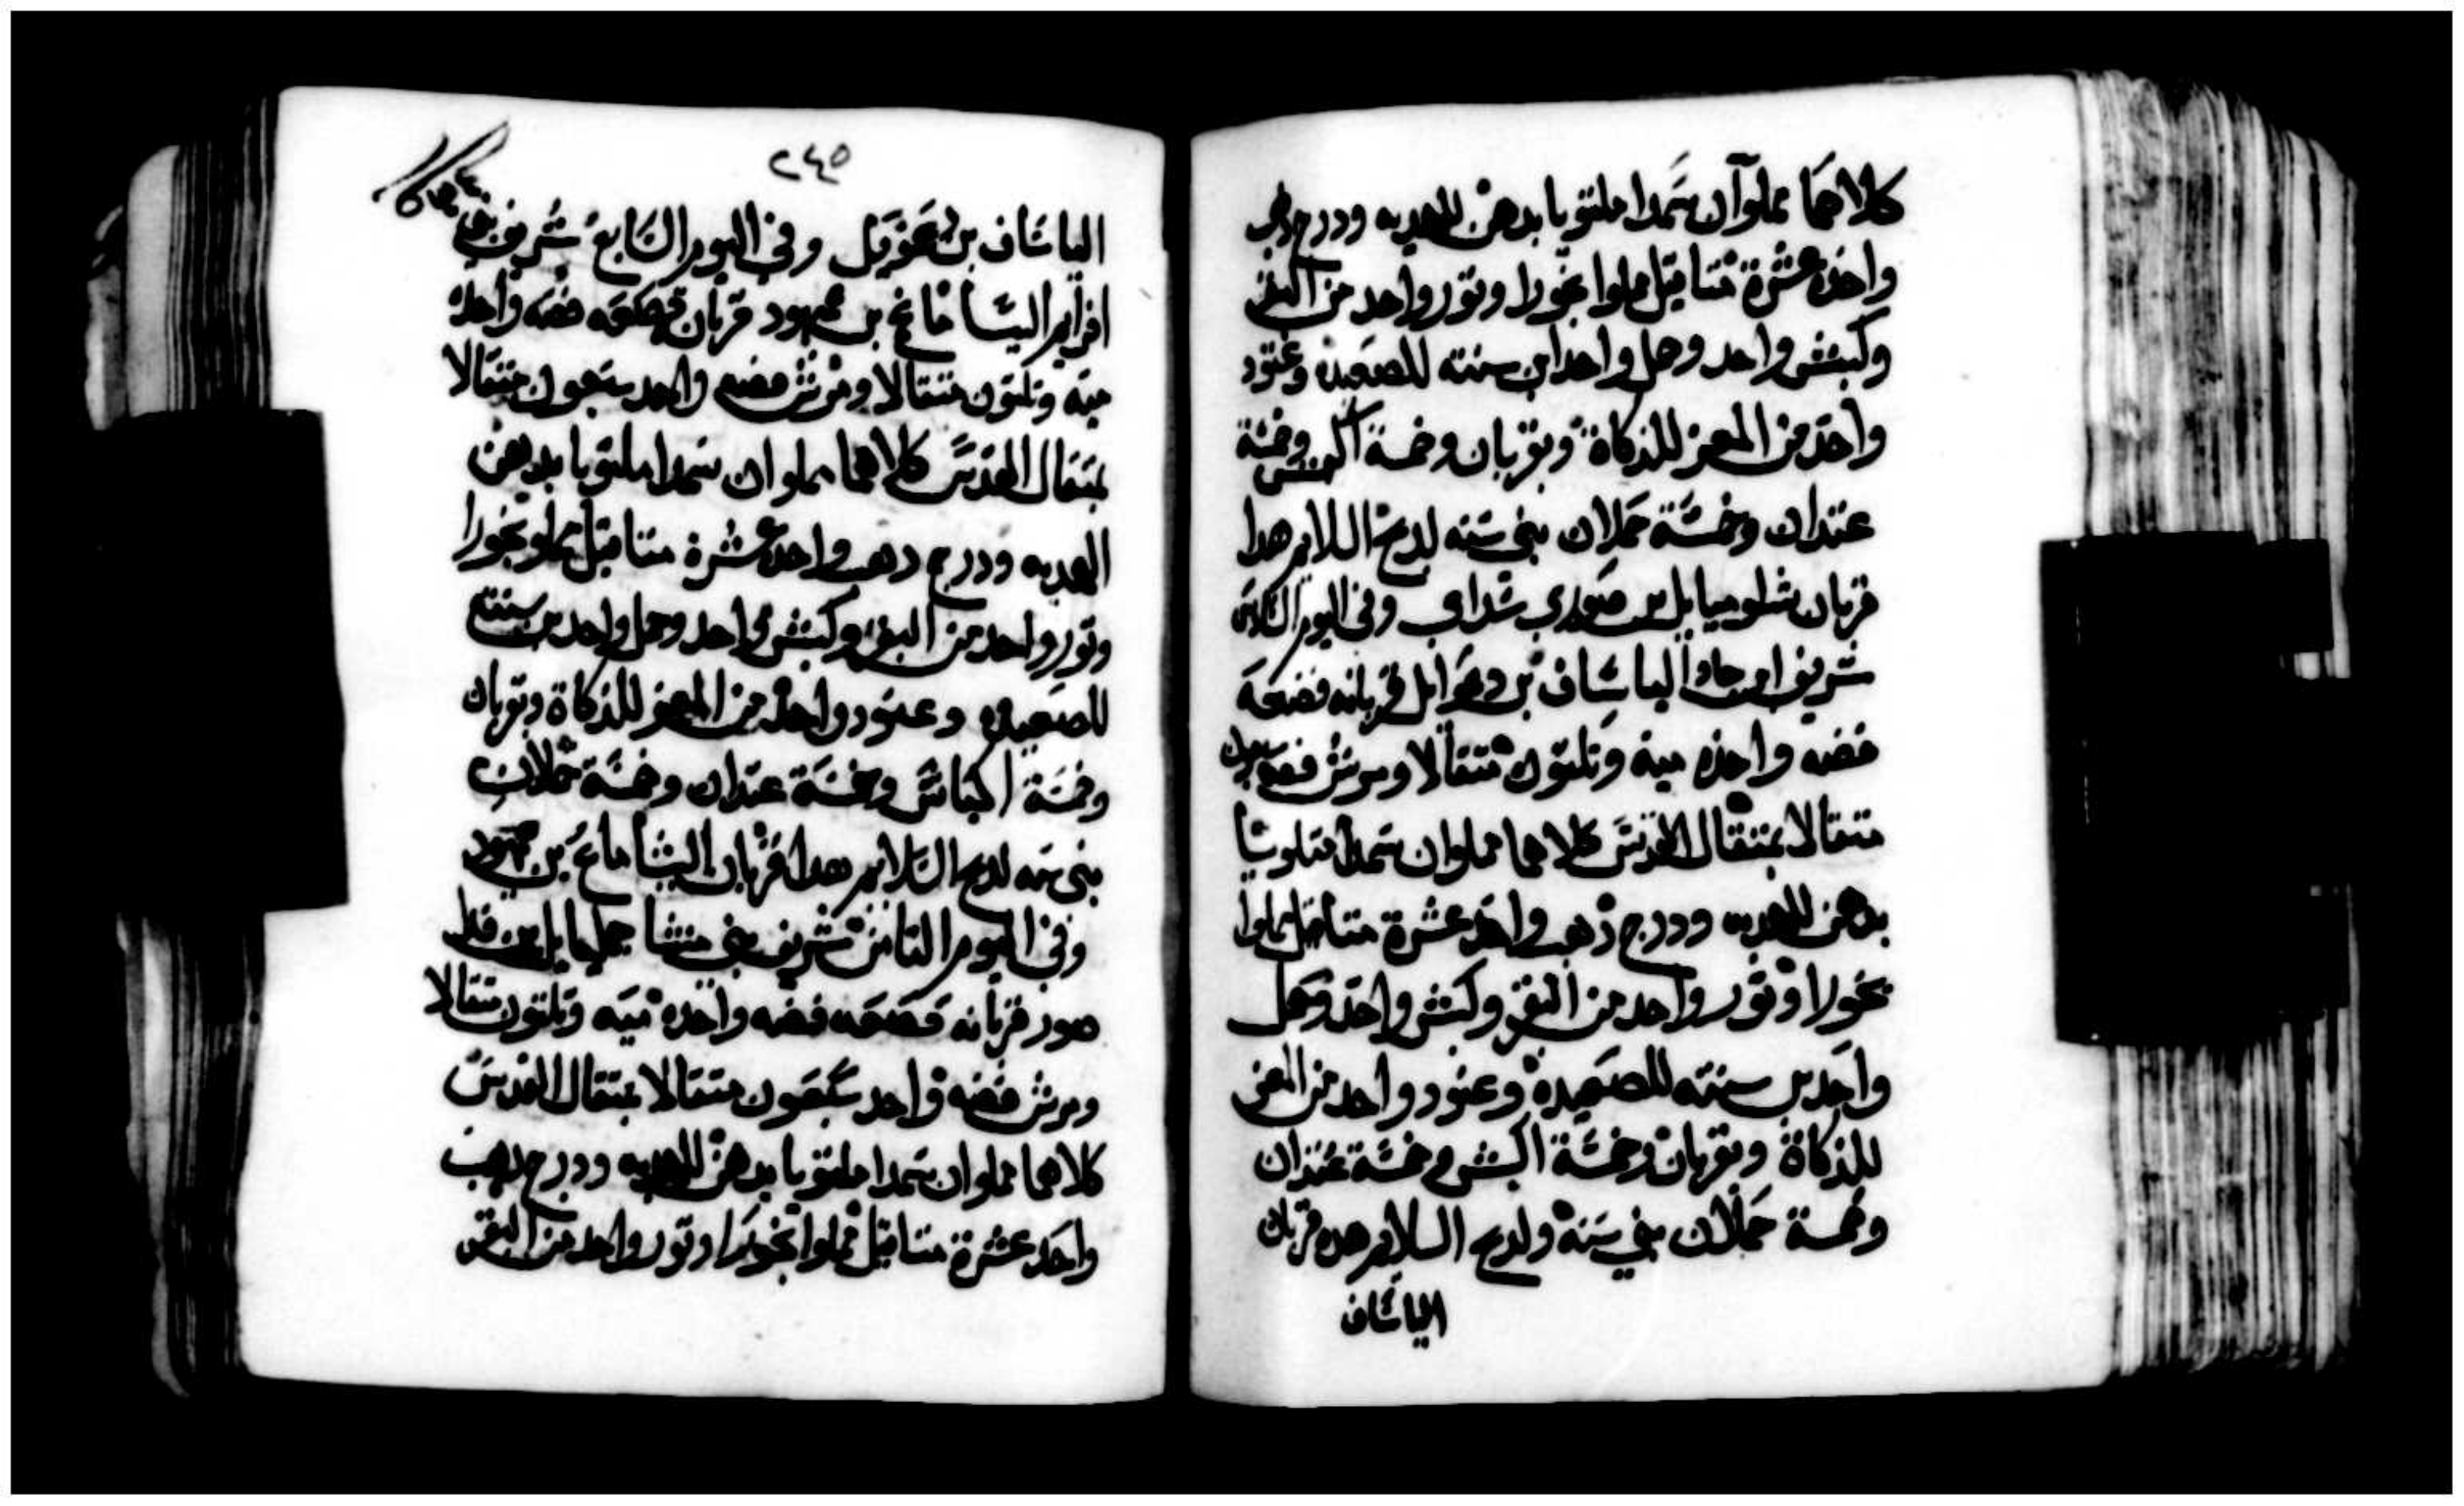 كلاهما مملوآن سمدا ملتوتا بدهن للهديه ودرج دهب
واحده عشرة متاقيل مملوا بخورا وتور واحد من البقر
وكبش واحد وحمل واحد ابن سنته للصعيده وعتود
واحد من المعز للذكاة وبقربان وخمسة اكبش وخمسة
عتدان وخمسة حملان بني سنه لدبح السلامه هدا
قربان شلوميايل بن صوري شداي وفي اليوم السادس
شريف جاد الياساف بن دعوايل قربانه قصعة
فضه واحده ميه وتلتون متقالا ومرش فضه سبعون
متقالا بمتقال القدس كلاهما مملوان سمدا ملتوتا
بدهن للهديه ودرج ذهب واحد عشرة متاقيل مملوا
بخورا وتور واحد من البقر وكبش واحد وحمل
واحد بن سنته للصعيده وعتود واحد من المعز
للذكاة وبقربان وخمسة اكبش وخمسة عتدان
وخمسة حملان بني سنه ولدبح السلامه هده قربان
الياساف
٢٤٥
الياساف بن وفي اليوم السابع شريف بني
افرايم اليشاماع بن عميهود قربان قصعه فضه واحده
ميه وتلتون متقالا ومرش فضه واحد سبعون متقالا
بمتقال القدس كلاهما مملوان سمدا ملتوتا بدهن
الهديه ودرج دهب واحد عشرة متاقيل مملو بخورا
وتور واحد من البقر وكبش واحد وحمل واحد بن سنته
للصعيده وعتود واحد من المعز للذكاة وبقربان
وخمسة اكباش وخمسة عتدان وخمسة حملان
بني سنه لدبح السلامه هدا قربان اليشاماع بن عميهود
وفي اليوم التامن شريف بني منشا جمليايل بن فدا
صور قربانه قصعه فضه واحده ميه وتلتون متقالا
ومرش فضه واحد سبعون متقالا بمتقال القدس
كلاهما مملوان سمدا ملتوتا بدهن للهديه ودرج دهب
واحد عشرة متاقيل مملوا بخورا وتور واحد من البقر